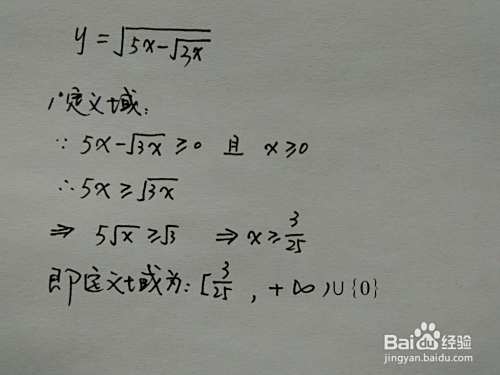 y=√(5x-√3x)
1°定义域:
∵ 5x-√3x ≥0 且 x≥0
∴5x≥√3x
⇒ 5√x ≥√3 ⇒ x≥3/25
即定义域为:[3/25, +∞)∪{0}
Baidu经验
jingyan.baidu.com